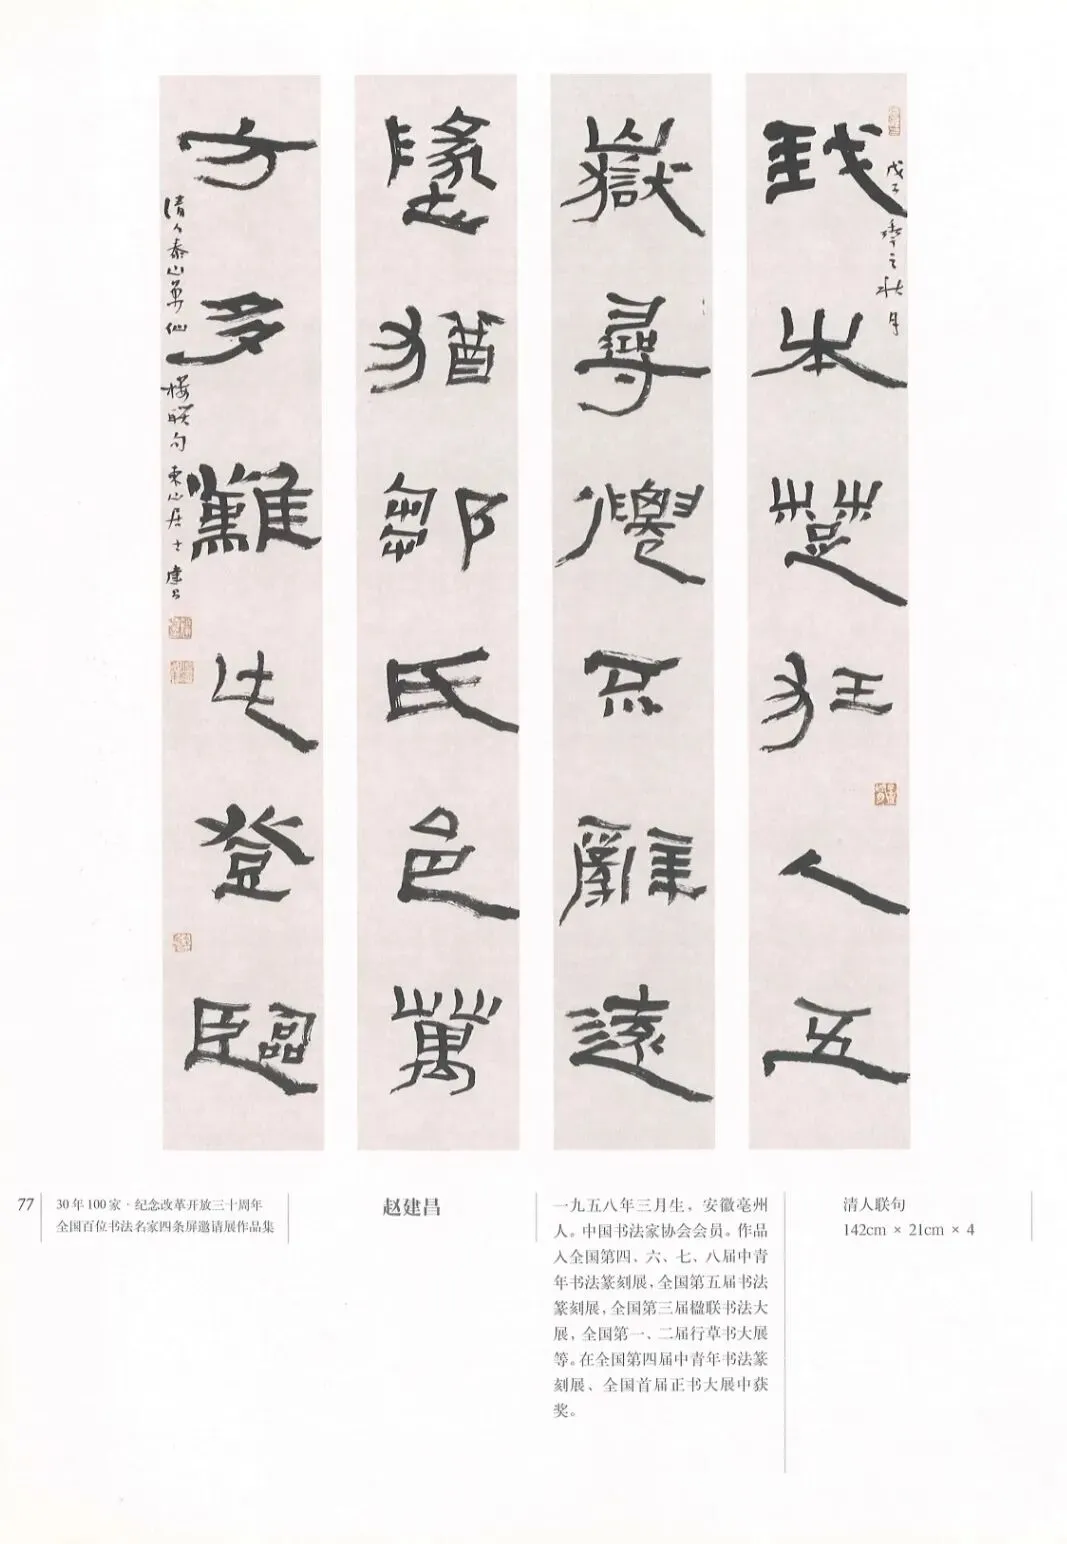 戊子季之秋月
我本楚狂人五
嶽尋僊不辭遠
墬猶鄒氏邑萬
方多難此登臨
清人泰山萬仙楼联句 東心居士
77
30年100家·纪念改革开放三十周年
全国百位书法名家四条屏邀请展作品集
赵建昌
一九五八年三月生，安徽亳州
人。中国书法家协会会员。作品
入全国第四、六、七、八届中青
年书法篆刻展，全国第五届书法
篆刻展，全国第三届楹联书法大
展，全国第一、二届行草书大展
等。在全国第四届中青年书法篆
刻展、全国首届正书大展中获
奖。
清人联句
142cm × 21cm × 4